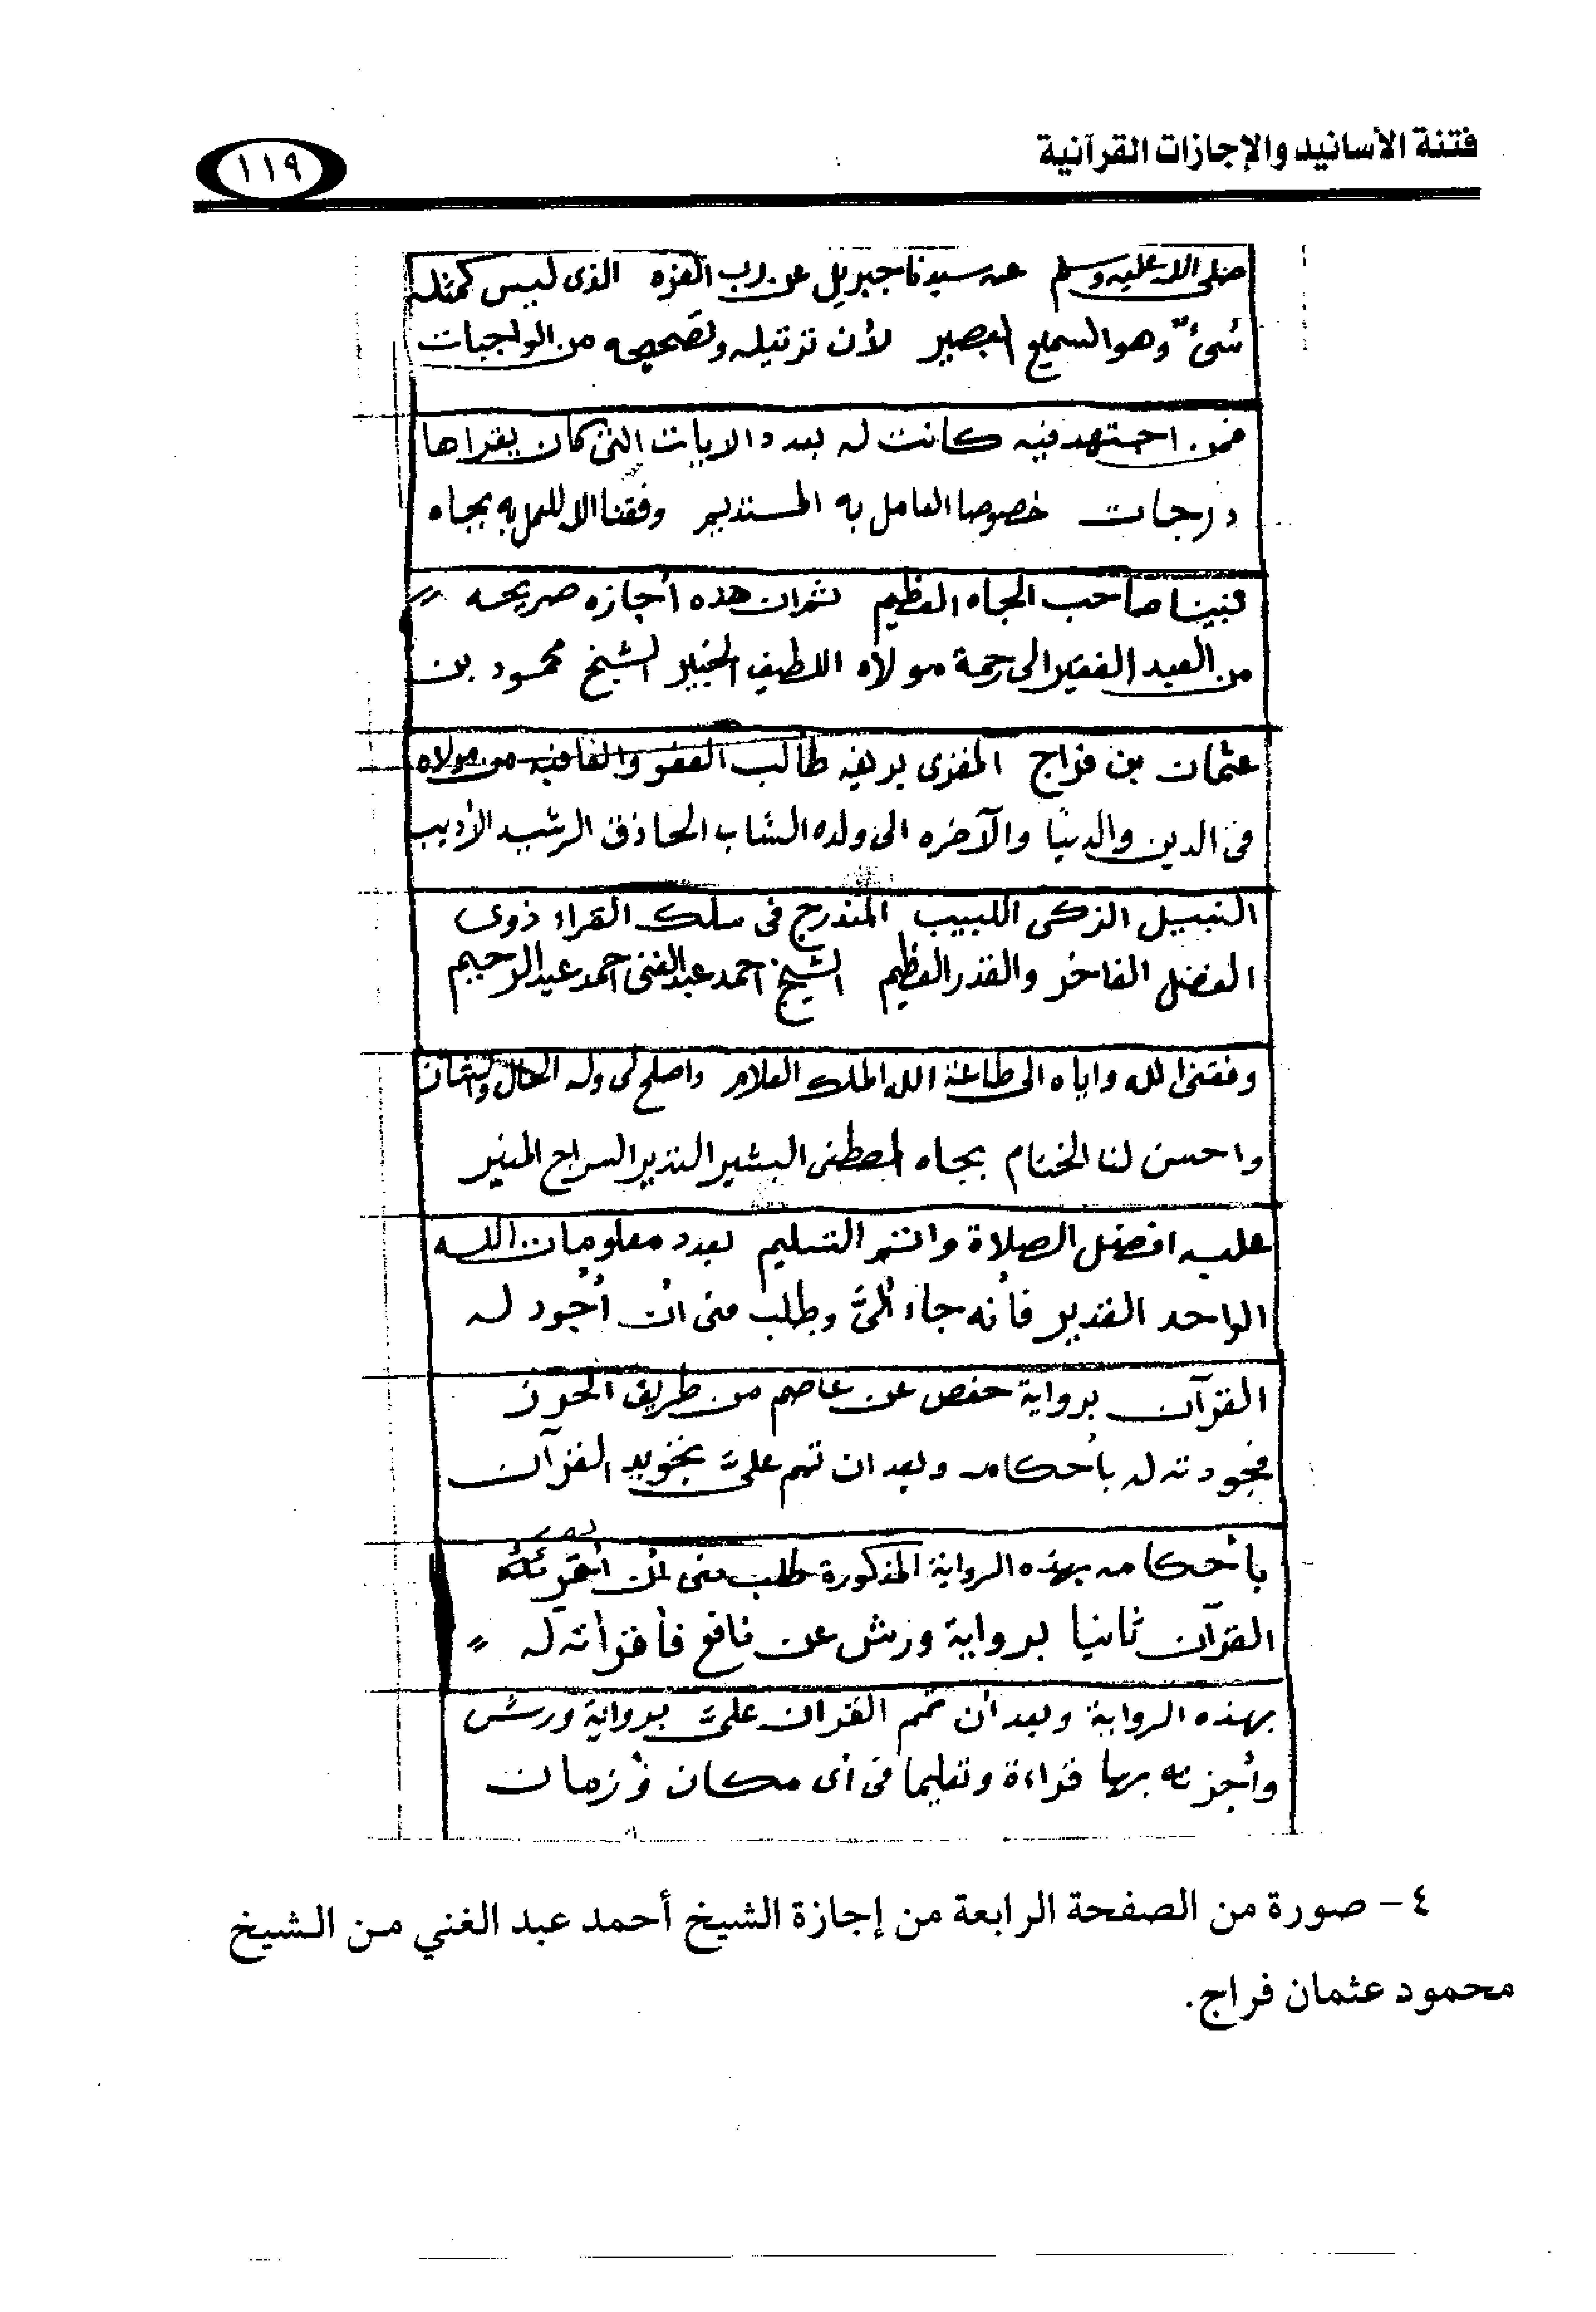 فتنة الأسانيد والإجازات القرآنية
١١٩
صلى الله عليه وسلم عن سيدنا جبريل عن رب العزه الذى ليس كمثله
شئ وهو السميع البصير لأن ترتيله وتصحيحه من الواجبات
فمن اجتهد فيه كانت له بعدد الايات التى كان يقراها
درجات خصوصا العامل به وفقنا الله للعمل به بجاه
نبينا صاحب الجاه العظيم ثم ان هذه أجازه صريحه "
من العبد الفقير الى رحمة مولاه اللطيف الخبير الشيخ محمود بن
عثمان بن فراج المقرى طالب العفو والعافيه من مولاه
فى الدين والدنيا والآخره الى ولده الشاب الحاذق الرشيد الأديب
النبيل الزكى اللبيب المندرج فى سلك القراء ذوى
الفضل الفاخر والقدر العظيم الشيخ احمد عبد الغنى احمد عبد الرحيم
وفقنى الله واياه الى طاعة الله الملك العلام واصلح لى وله الحال والشان
واحسن لنا الختام بجاه المصطفى البشير النذير السراج المنير
عليه افضل الصلاة واتم التسليم بعدد معلومات الله
الواحد القدير فأنه جاء الىَّ وطلب منى أن أجود له
القرآن برواية حفص عن عاصم من طريق الحرز
فجودته له بأحكامه وبعد ان تم علىَّ تجويد القرآن
بأحكامه بهذه الرواية المذكورة طلب منى أن أقرئه
القرآن ثانيا برواية ورش عن نافع فأقرأته له "
بهذه الرواية وبعد أن تمم القران علىَّ برواية ورش
وأجزته بها قراءة وتعليما فى أى مكان وزمان
٤- صورة من الصفحة الرابعة من إجازة الشيخ أحمد عبد الغني من الشيخ
محمود عثمان فراج.